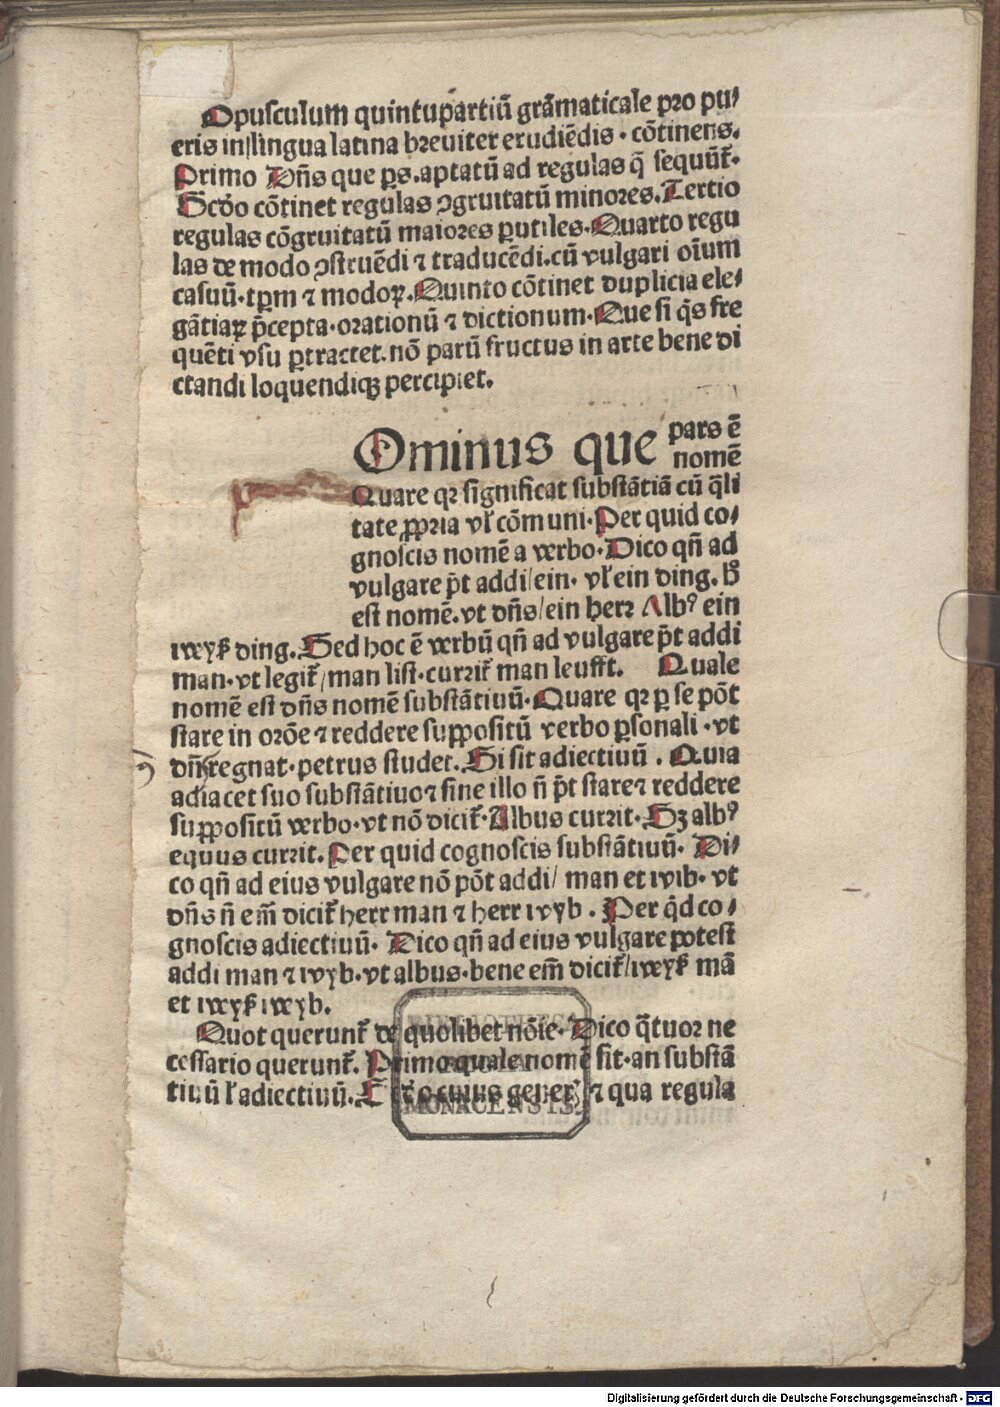 Opusculum quintupartiū grãmaticale pro pu⸗
eris in lingua latina breuiter erudiẽdis · cõtinens.
Primo Dñs que ꝑs.aptatū ad regulas q̃ sequũt᷑.
Scďo cõtinet regulas ꝯgruitatū minores.Tertio
regulas cõgruitatū maiores ꝑutiles.Quarto regu
las de modo ꝯstruẽdi ⁊ traducẽdi.cū vulgari oĩum
casuū.tꝑm ⁊ modoꝝ.Quinto cõtinet duplicia ele⸗
gãtiaꝝ p̃cepta.orationū ⁊ dictionum.Que si q̃s fre
quẽti vsu ꝑtractet.nõ parū fructus in arte bene di
ctandi loquendiqꝫ percipiet.
Ominus que pars ẽ
nomẽ
Quare qꝛ significat substãtiã cū q̃li
tate ꝓpria vł cõmuni.Per quid co⸗
gnoscis nomẽ a verbo.Dico qñ ad
vulgare p̃t addi/ein. vł ein ding.
est nomẽ.vt dñs/ein herr Albꝰ ein
weyß ding.Sed hoc ẽ verbū qñ ad vulgare p̃t addi
man.vt legit᷑/man list.currit᷑ man leufft. Quale
nomẽ est dñs nomẽ substãtiuū.Quare qꝛ ꝑ se põt
stare in orõe ⁊ reddere suppositū verbo ꝑsonali .vt
dñs regnat.petrus studet.Si sit adiectiuū . Quia
adiacet suo substãtiuo ⁊ sine illo ñ p̃t stare ⁊ reddere
suppositū verbo.vt nõ dicit᷑.Albus currit.Sꝫ albꝰ
equus currit.Per quid cognoscis substãtiuū. Di⸗
co qñ ad eius vulgare nõ põt addi/ man et wib. vt
dñs ñ em̃ dicit᷑ herr man ⁊ herr wyb . Per q̇d co⸗
gnoscis adiectiuū. Dico qñ ad eius vulgare potest
addi man ⁊ wyb.vt albus.bene em̃ dicit᷑/weyß mã
et weyß weyb.
Quot querunt᷑ de quolibet nõie. Dico q̃tuor ne
cessario querunt᷑. Primo quale nomẽ sit.an substã
tiuū ł adiectiuū. cuius gener᷑ ⁊ qua regula
BIBLIOTHECA
REGIA
MONACENSIS.
Digitalisierung gefördert durch die Deutsche Forschungsgemeinschaft - DFG